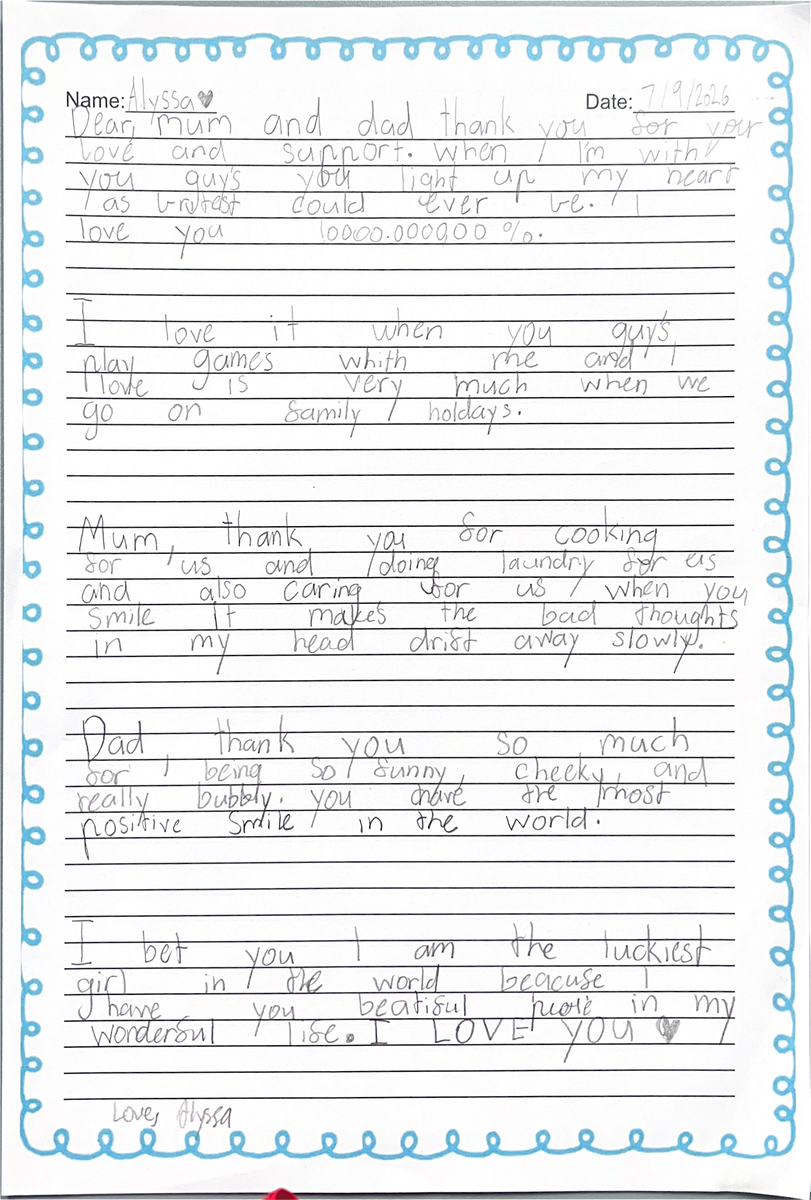 Name: Alyssa♥ Date: 7/9/2026
Dear, mum and dad thank you for your
love and support. when I'm with
you guy's you light up my heart
as brutest could ever be. I
love you 10000.000900 %.
I love it when you guy's
play games whith me and I
love is very much when we
go on family holdays.
Mum, thank you for cooking
for us and doing laundry for us
and also caring for us when you
smile it makes the bad thoughts
in my head drift away slowly.
Dad, thank you so much
for being so funny, cheeky, and
really bubbly. you have the most
positive smile in the world.
I bet you I am the luckiest
girl in the world beacuse I
have you beatiful in my
wonderful life. I LOVE YOU ♥
Love, Alyssa